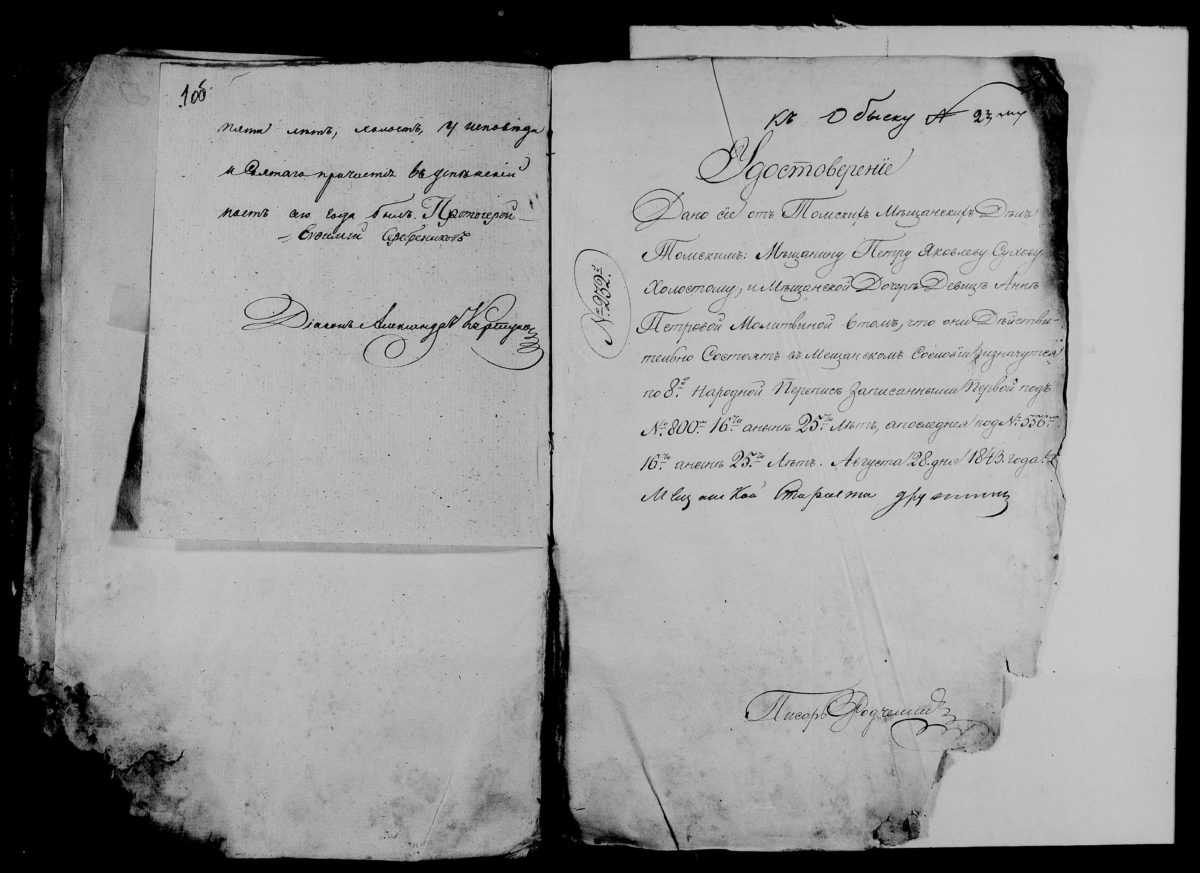 100
пяти летъ, холостъ, у исповеди
и Святаго причастія въ успенскій
постъ сего года былъ. Протоіерей
Евѳимій Серебрениковъ
Діаконъ Александръ
Къ Обыску № 23му
Удостовереніе
Дано сіе отъ Томскихъ Мѣщанскихъ Дѣлъ
Томскимъ: Мѣщанину Петру Яковлеву Сухову
Холостому, и Мѣщанской Дочерѣ Девицѣ Аннѣ
Петровой Молитвиной втомъ, что они Дѣйстви-
тельно Состоятъ въ Мещанскомъ Сословіи и значутся
по 8й Народной Переписѣ Записанными Первой подъ
№ 800м 16ти анынѣ 25ти Лѣтъ, апоследняя под № 556м
16ти анынѣ 25ти Лѣтъ. Августа 28. дня 1843. года.
Мещанской Староста
№ 252й
Писарь